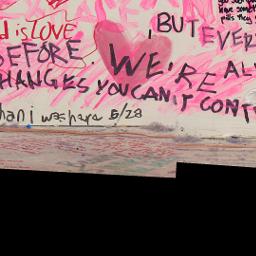 d is LOVE
BUT EVER
BEFORE. WE'RE AL
HANGES YOU CAN'T CONT
hani was here 5/28